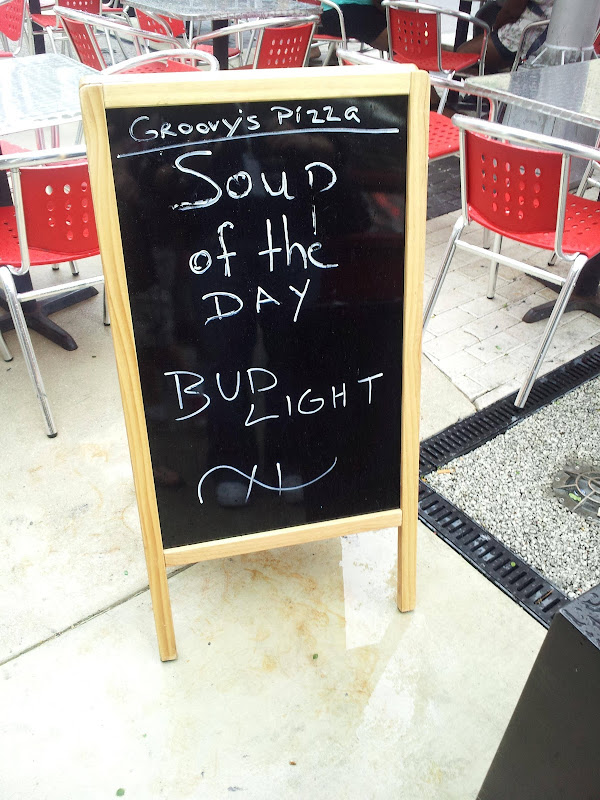 Groovy's Pizza
Soup
of the
DAY
BUD
LIGHT